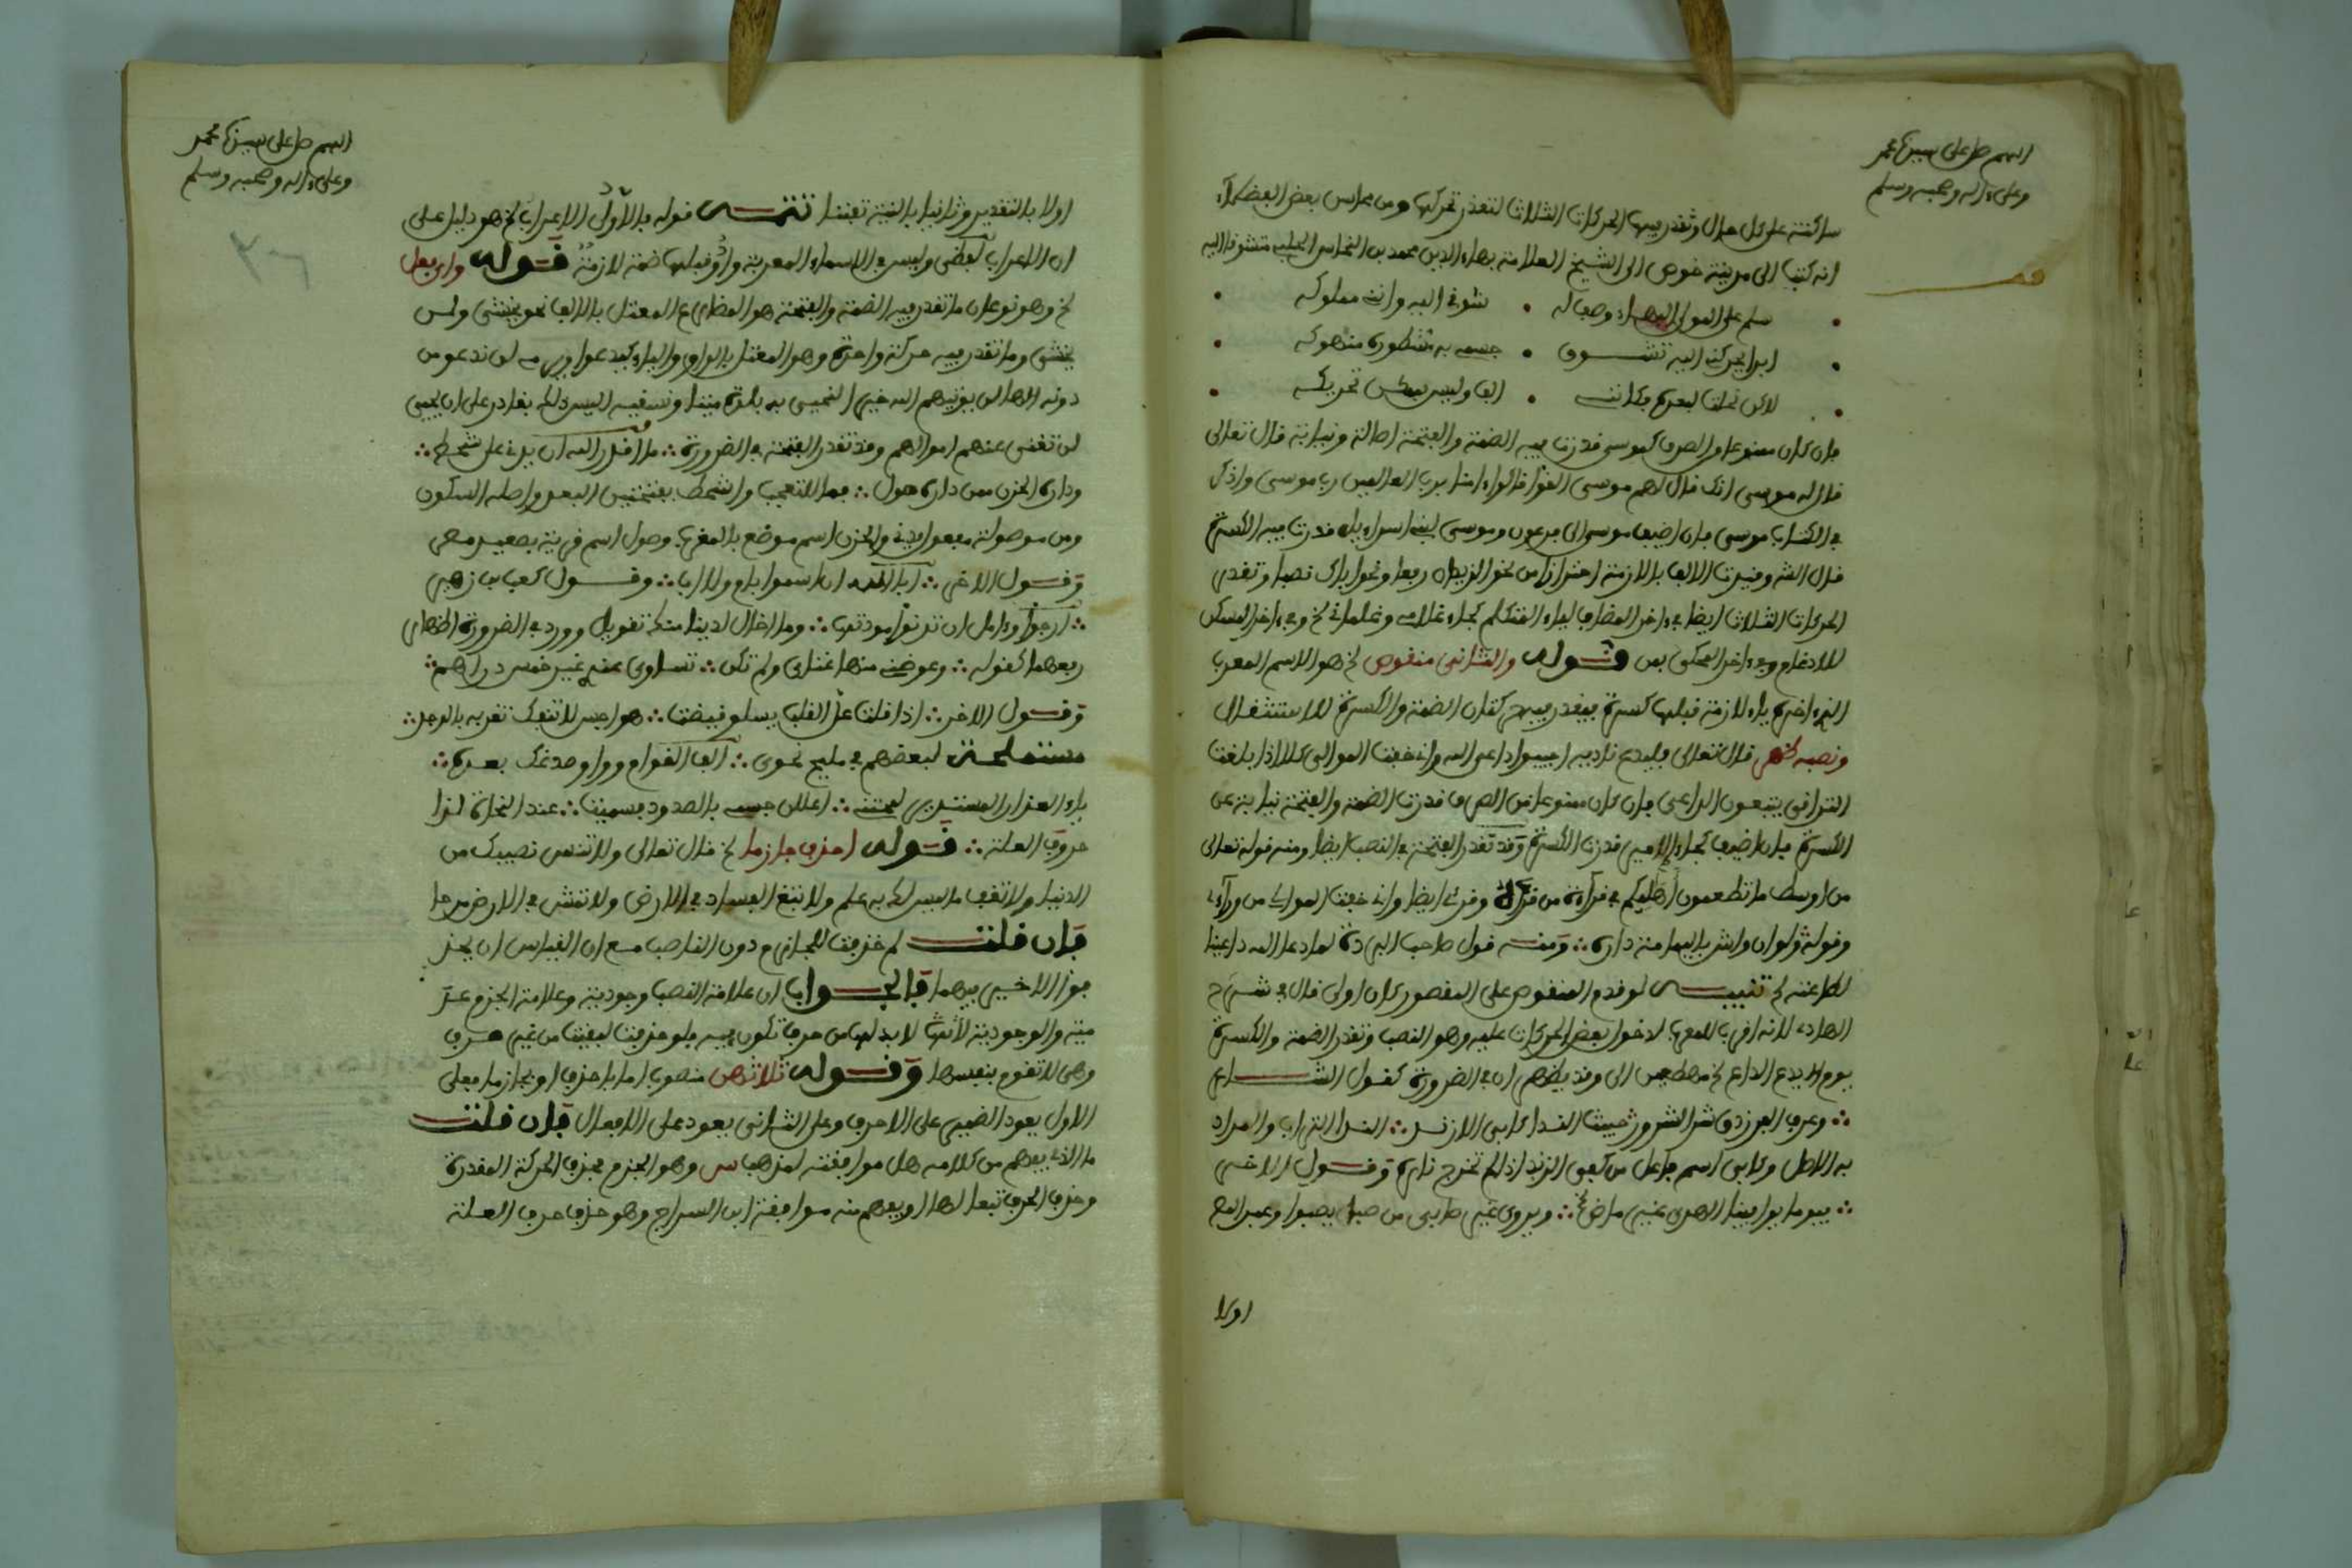 اللهم صل على سيدنا محمد
وعلى ءاله وصحبه وسلم
ساكنة على كل حال وتقدر فيها الحركات الثلاث لتعذر تحركها ومن محاسن بعض الفضلاء
انه كتب الى مدينة قوص الى الشيخ العلامة بهاء الدين محمد بن النحاس الحلبي متشوقا اليه
سلم على المولى البهاء وصف له شوقي اليه وانني مملوكه
ابدا يحركني اليه تشوق جسمي به مشطوره منهوكه
لاكن نحلت لبعده فكانني الف وليس بممكن تحريكه
فان كان ممنوعا من الصرف كموسى قدرت فيه الضمة والفتحة اصالة ونيابة قال تعالى
قال له موسى انك قال لهم موسى القوا قالوا ءامنا برب العالمين رب موسى واذكر
في الكتاب موسى فان اضيف موسى الى فرعون وموسى بني اسراءيل قدرت فيه الكسرة
قال الش وقيدت الالف بلازمة احترازا من نحو الزيدان رفعا ونحو اباك نصبا وتقدر
الحركات الثلاث ايضا في ءاخر المضاف لياء المتكلم كجاء غلامي وغلماني لخ وفي ءاخر المسكن
للادغام وفي ءاخر المحكي بمن قوله والثاني منقوص لخ هو الاسم المعرب
الذي ءاخره ياء لازمة قبلها كسرة فيقدر فيه حركتان الضمة والكسرة للاستثقال
ونصبه ظهر قال تعالى فليدع ناديه اجيبوا داعي الله واني خفت الموالي كلا اذا بلغت
التراقي يتبعون الداعي فان كان ممنوعا من الصرف قدرت الضمة والفتحة نيابة عن
الكسرة فان اضيف كجاء الامير قدرت الكسرة وقد تقدر الفتحة في النصب ايضا ومنه قوله تعالى
من اوسط ما تطعمون اهليكم في قراءة من قرأ وقرئ ايضا واني خفت الموالي من وراءي
وقوله ولو ان واش باليمامة داره ومنه قول صاحب البردة لما دعا الله داعينا
لطاعته لخ تنبيه لو قدم المنقوص على المقصور كان اولى قال في شرح
الهادي لانه اقرب للمعرب لدخول بعض الحركات عليه وهو النصب وتقدر الضمة والكسرة
يوم يدع الداع لخ مهطعين الى وقد يظهران في الضرورة كقول الشاعر
وعرق الفرزدق شر العروق خبيث الثرى كابي الازند الثرى التراب والمراد
به الاصل وكابي اسم فاعل من كبى الزند اذا لم تخرج ناره وقول الاخر
فيوما يوافين الهوى غير ماضي ويروى غير صابي من صبا يصبوا وعبر المص
اولا
اللهم صل على سيدنا محمد
وعلى ءاله وصحبه وسلم
اولا بالتقدير وثانيا بالنية تفننا تتمة قوله فالاول الاعراب لخ هو دليل على
ان الاعراب لفظي وليس في الاسماء المعربة واو قبلها ضمة لازمة قوله واي فعل
لخ وهو نوعان ما تقدر فيه الضمة والفتحة هو المضارع المعتل بالالف نحو يخشى ولن
يخشى وما تقدر فيه حركة واحدة وهو المعتل بالواو والياء كيدعوا ويرمي لن ندعو من
دونه الاها لن يوتيهم الله خيرا لنحيي به بلدة ميتا ونسقيه اليس ذلك بقادر على ان يحيي
لن تغني عنهم اموالهم وقد تقدر الفتحة في الضرورة ما اقدر الله ان يدني على شحط
من داره الحزن ممن داره صول فما للتعجب والشحط بفتحتين البعد واصله السكون
ومن موصولة مفعول يدني والحزن اسم موضع بالمغرب وصول اسم قرية بصعيد مصر
وقول الاخر ابى الله ان اسموا بام ولا اب وقول كعب بن زهير
ارجوا وءامل ان تدنوا مودتها وما اخال لدينا منك تنويل وورد في الضرورة اظهار
رفعهما كقوله وعوضني منها غناي ولم تكن تساوي عندي غير خمس دراهم
وقول الاخر اذا قلت عل القلب يسلو قيضت هواجس لا تنفك تغريه بالوجد
مستملحة لبعضهم في مليح نحوي الف القوام وواو صدغك بعده
ياء العذار المستدير لمحنتي اعللن جسمي بالصدود فسميت عند النحاة لذا
حروف العلة قوله احذف جازما لخ قال تعالى ولا تنس نصيبك من
الدنيا ولا تقف ما ليس لك به علم ولا تبغ الفساد في الارض ولا تمش في الارض مرحا
فان قلت لم حذفت للجازم دون الناصب مع ان القياس ان يحذ
فوا الاخير فيهما فالجواب ان علامة النصب وجودية وعلامة الجزم عد
مية والوجودية لا بد لها من حرف تكون فيه فلو حذفت لبقيت من غير حرف
وهي لا تقوم بنفسها وقوله ثلاثهن منصوب اما باحذف او بجازما فعلى
الاول يعود الضمير على الاحرف وعلى الثاني يعود على الافعال فان قلت
ما الذي يفهم من كلامه هل موافقته لمذهب س وهو الجزم بحذف الحركة المقدرة
وحذف الحرف تبعا لها او يفهم منه موافقة ابن السراج وهو حذف حرف العلة